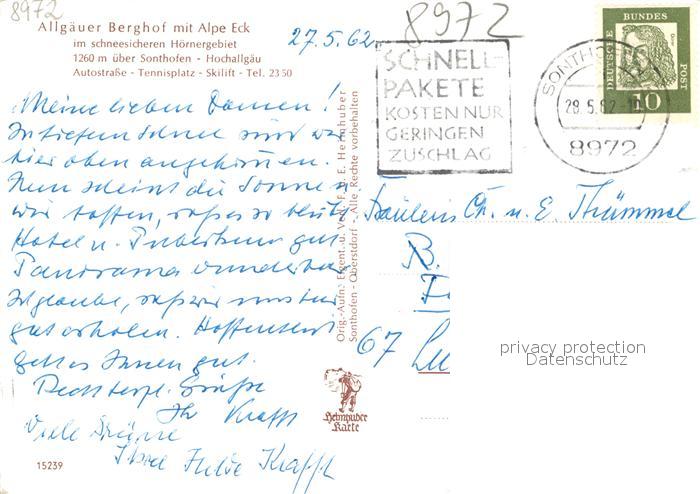 8972
Allgäuer Berghof mit Alpe Eck
im schneesicheren Hörnergebiet
1260 m über Sonthofen - Hochallgäu
Autostraße - Tennisplatz - Skilift - Tel. 23 50
27.5.62.
8972
SCHNELL-
PAKETE
KOSTEN NUR
GERINGEN
ZUSCHLAG
SONTHOFEN
28.5.62
8972
DEUTSCHE BUNDESPOST
10
Meine lieben Damen!
In tiefem Schnee sind wir
hier oben angekommen.
Nun scheint die Sonne u.
wir hoffen, daß es so bleibt.
Hotel u. Unterkunft gut
Panorama wunderbar
Ich glaube, daß wir uns hier
gut erholen. Hoffentlich
geht es Ihnen gut.
Grüße
Ihr Krafft
Viele Grüße
Ihre Hilde Krafft
Orig.-Aufn. Eigent. u. Verl. F. u. E. Heimhuber
Sonthofen - Oberstdorf - Alle Rechte vorbehalten
Fräuleins Ch. u. E. Thümmel
67 Lu
privacy protection
Datenschutz
Heimhuber
Karte
15239